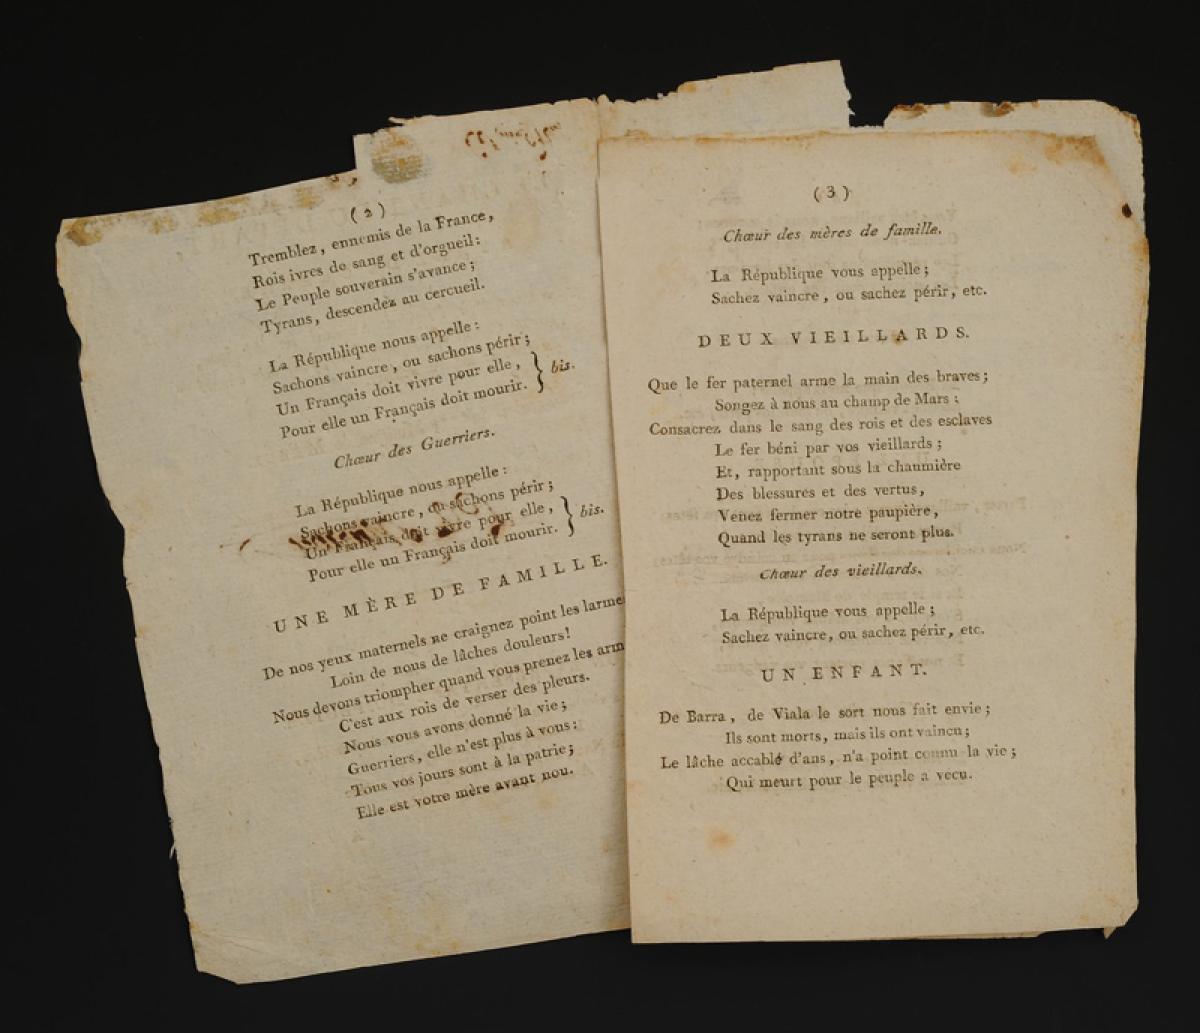 (2)
Tremblez, ennemis de la France,
Rois ivres de sang et d'orgueil:
Le Peuple souverain s'avance;
Tyrans, descendez au cercueil.
La République nous appelle:
Sachons vaincre, ou sachons périr;
Un Français doit vivre pour elle,
Pour elle un Français doit mourir. } bis.
Chœur des Guerriers.
La République nous appelle:
Sachons vaincre, ou sachons périr;
Un Français doit vivre pour elle,
Pour elle un Français doit mourir. } bis.
UNE MÈRE DE FAMILLE.
De nos yeux maternels ne craignez point les larme
Loin de nous de lâches douleurs!
Nous devons triompher quand vous prenez les arm
C'est aux rois de verser des pleurs.
Nous vous avons donné la vie;
Guerriers, elle n'est plus à vous:
Tous vos jours sont à la patrie;
Elle est votre mère avant nou.
(3)
Chœur des mères de famille.
La République vous appelle;
Sachez vaincre, ou sachez périr, etc.
DEUX VIEILLARDS.
Que le fer paternel arme la main des braves;
Songez à nous au champ de Mars:
Consacrez dans le sang des rois et des esclaves
Le fer béni par vos vieillards;
Et, rapportant sous la chaumière
Des blessures et des vertus,
Venez fermer notre paupière,
Quand les tyrans ne seront plus.
Chœur des vieillards.
La République vous appelle;
Sachez vaincre, ou sachez périr, etc.
UN ENFANT.
De Barra, de Viala le sort nous fait envie;
Ils sont morts, mais ils ont vaincu;
Le lâche accablé d'ans, n'a point connu la vie;
Qui meurt pour le peuple a vecu.